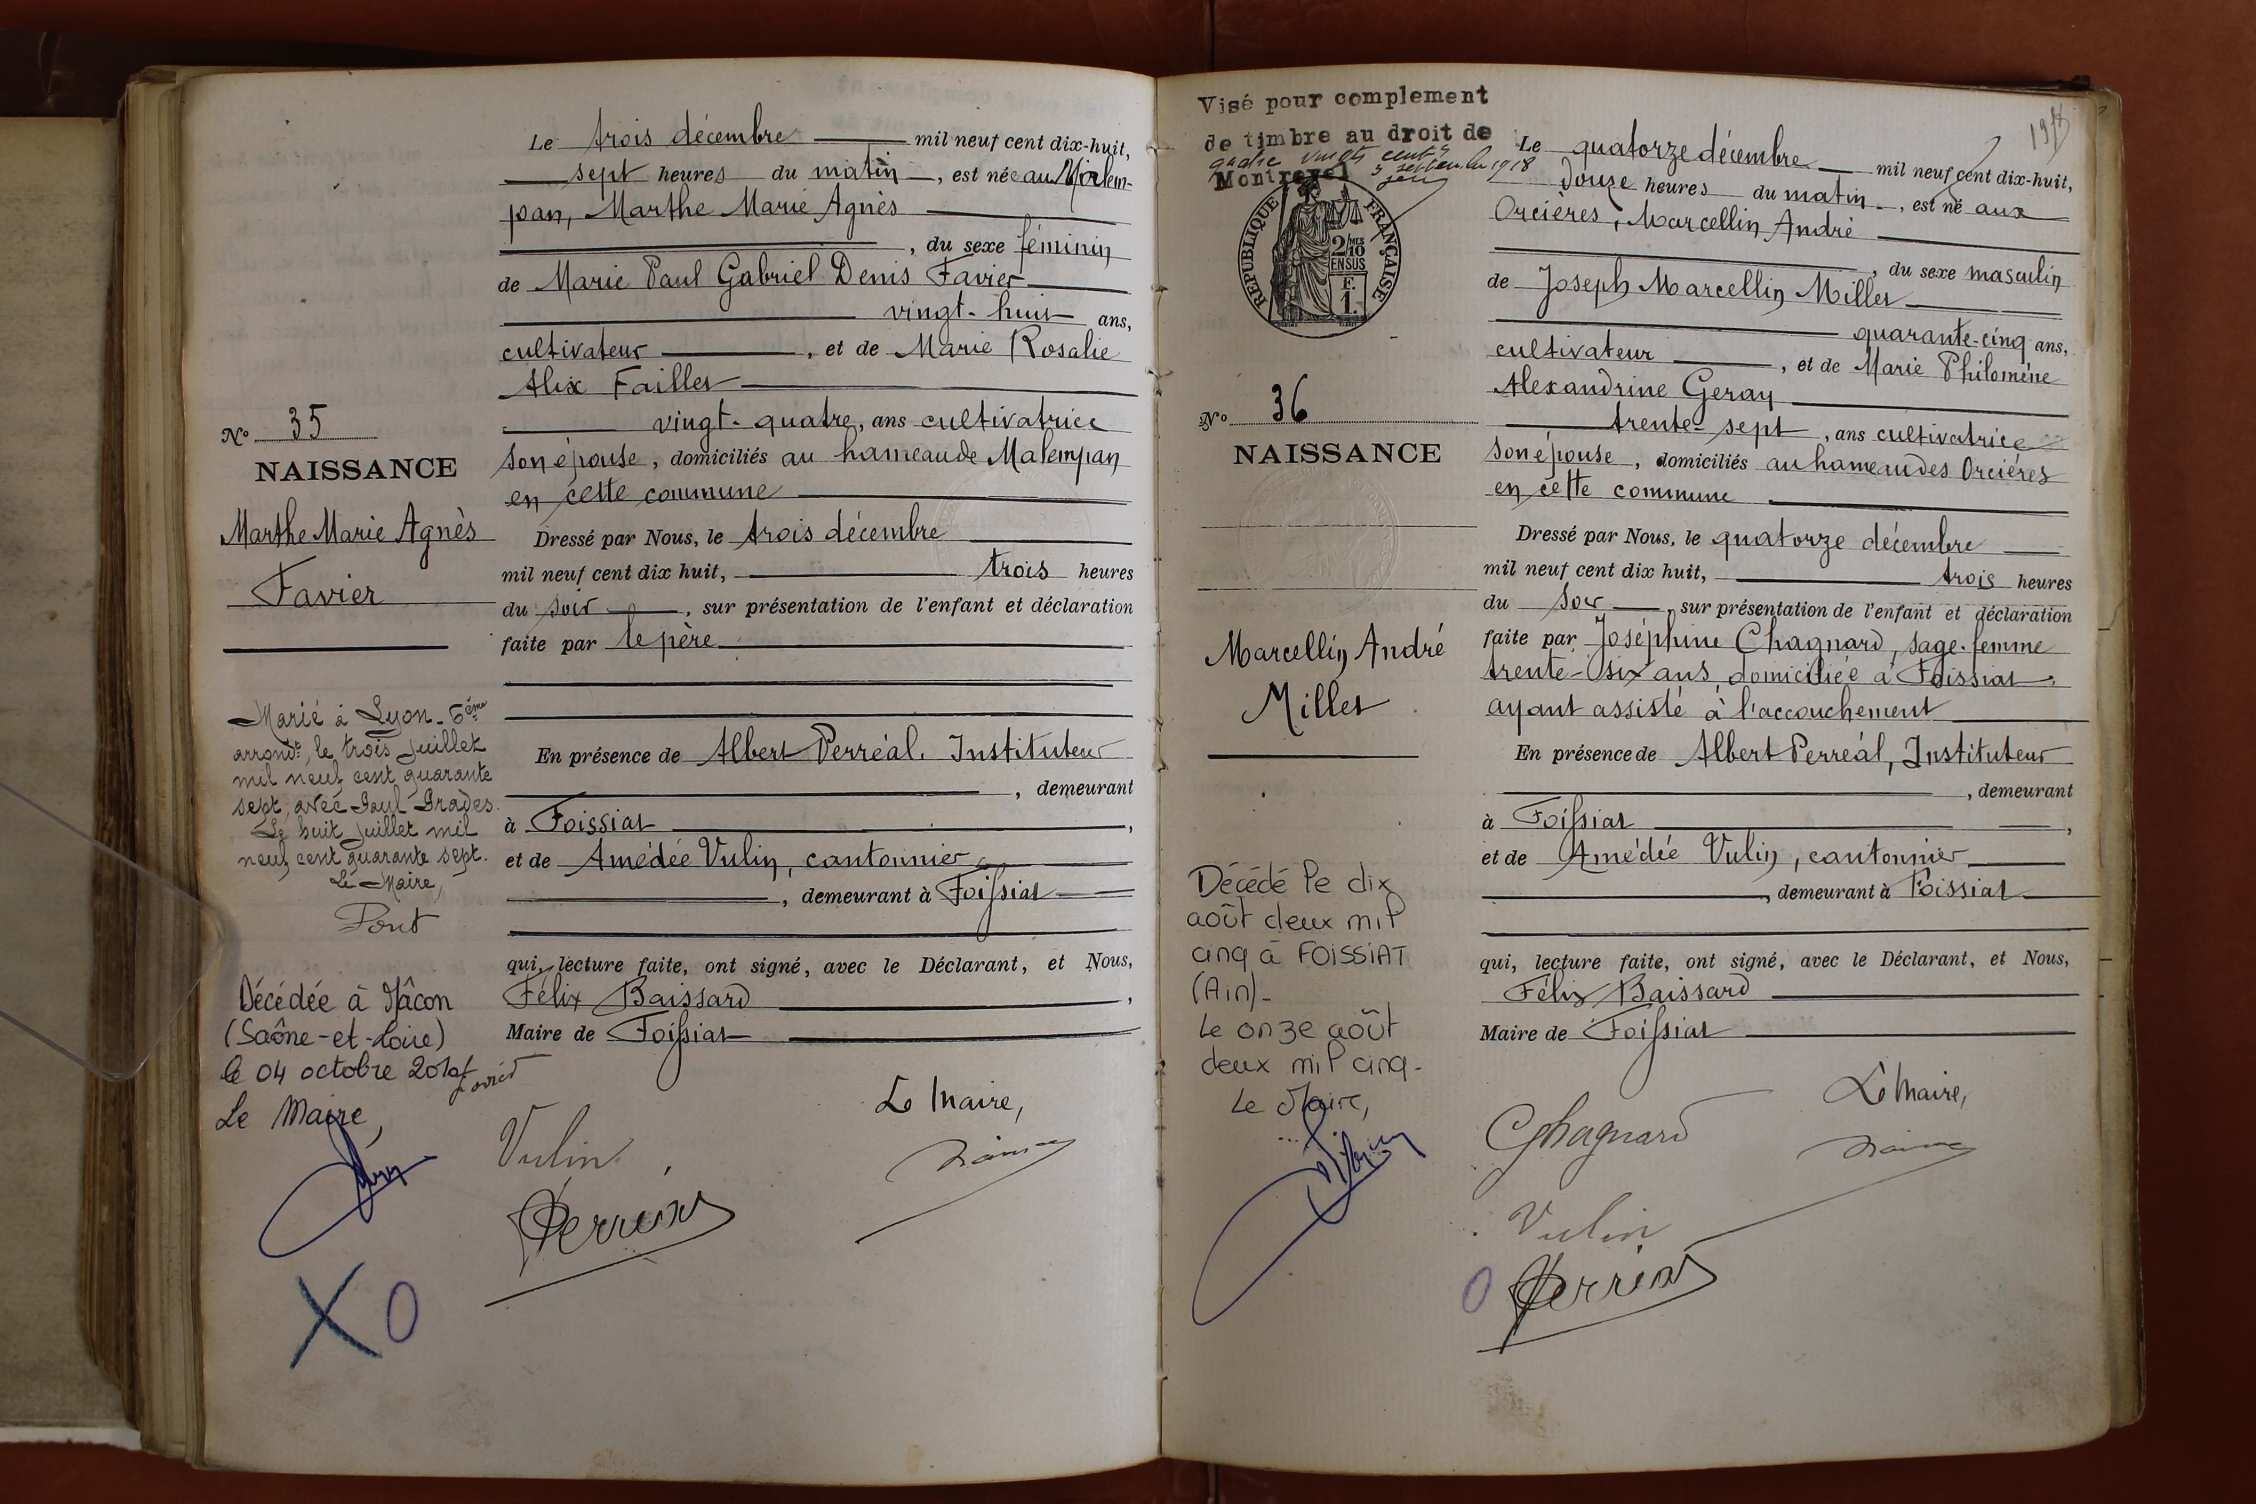 Le trois décembre mil neuf cent dix-huit,
sept heures du matin, est née au Malem-
pan, Marthe Marie Agnès
, du sexe féminin
de Marie Paul Gabriel Denis Favier
vingt-huit ans,
cultivateur, et de Marie Rosalie
Alix Faillet
vingt-quatre, ans cultivatrice
son épouse, domiciliés au hameau de Malempan
en cette commune
Dressé par Nous, le trois décembre
mil neuf cent dix huit, trois heures
du soir, sur présentation de l'enfant et déclaration
faite par le père
En présence de Albert Perréal. Instituteur
, demeurant
à Foissiat,
et de Amédée Vulin, cantonnier
, demeurant à Foissiat
qui, lecture faite, ont signé, avec le Déclarant, et Nous,
Félix Baissard,
Maire de Foissiat
Le Maire,
Favier
Vulin
Perréal
No 35
NAISSANCE
Marthe Marie Agnès
Favier
Marié à Lyon-6ème
arrondt, le trois juillet
mil neuf cent quarante
sept, avec Paul Prades.
Le huit juillet mil
neuf cent quarante sept.
Le Maire,
Pont
Décédée à Mâcon
(Saône-et-Loire)
le 04 octobre
Le Maire,
XO
Visé pour complement
de timbre au droit de
quatre vingts cent
septembre 1918
Montrevel
REPUBLIQUE FRANÇAISE
2/10MES
EN SUS
F.
1.
No 36
NAISSANCE
Marcellin André
Millet
Décédé le dix
août deux mil
cinq à FOISSIAT
(Ain)-
Le onze août
deux mil cinq-
Le Maire,
Le quatorze décembre mil neuf cent dix-huit,
Douze heures du matin, est né aux
Orcières, Marcellin André
, du sexe masculin
de Joseph Marcellin Millet
quarante-cinq ans,
cultivateur, et de Marie Philomène
Alexandrine Geray
trente-sept, ans cultivatrice
son épouse, domiciliés au hameau des Orcières
en cette commune
Dressé par Nous, le quatorze décembre
mil neuf cent dix huit, trois heures
du soir, sur présentation de l'enfant et déclaration
faite par Joséphine Chagnard, sage-femme
trente-six ans domiciliée à Foissiat,
ayant assisté à l'accouchement
En présence de Albert Perréal, Instituteur
, demeurant
à Foissiat,
et de Amédée Vulin, cantonnier
, demeurant à Foissiat
qui, lecture faite, ont signé, avec le Déclarant, et Nous,
Félix Baissard
Maire de Foissiat
Le Maire,
Chagnard
Vulin
O Perréal